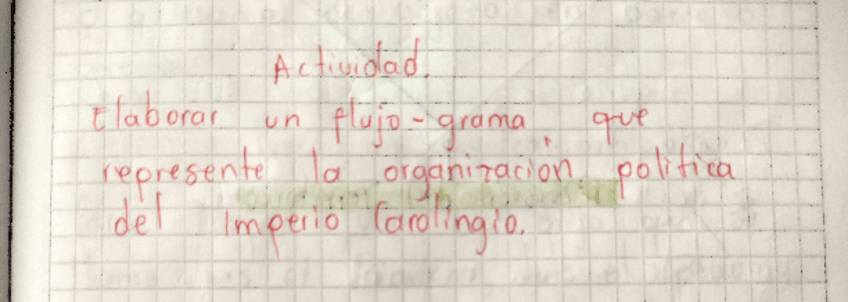 Actividad.
Elaborar un flujo-grama que
represente la organización politica
del Imperio Carolingio.